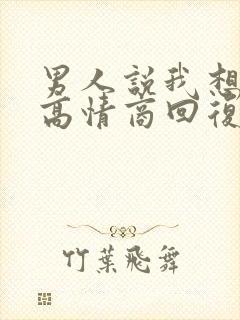 男人說我想
高情商回復
竹葉飛舞